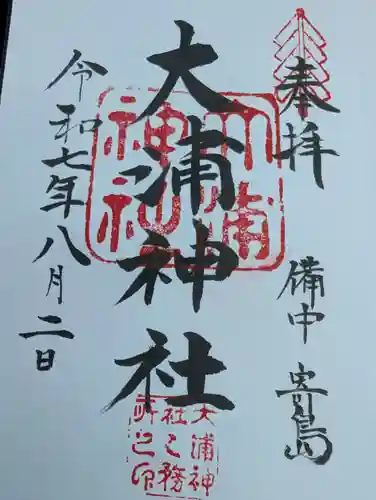 奉拝
備中 寄島
大浦神社
大浦神社
令和七年八月二日
大浦神
社之務
所之印